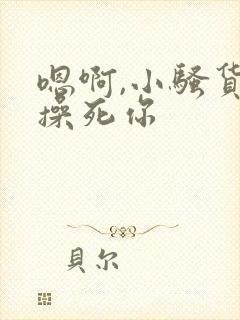 嗯啊,小騷貨
操死你
貝尔